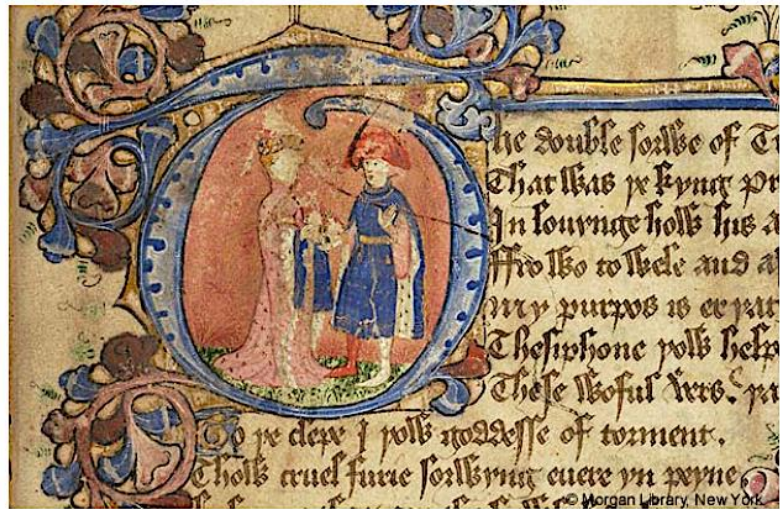 The double sorwe of T
That was þe kyng Pr
In louynge how his a
ffro wo to wele and a
My purpos is er þat
Thesiphone yow help
These woful vers. þa
To þe clepe I yow goddesse of torment.
Thow cruel furie sorwyng euere yn peyne
© Morgan Library, New York